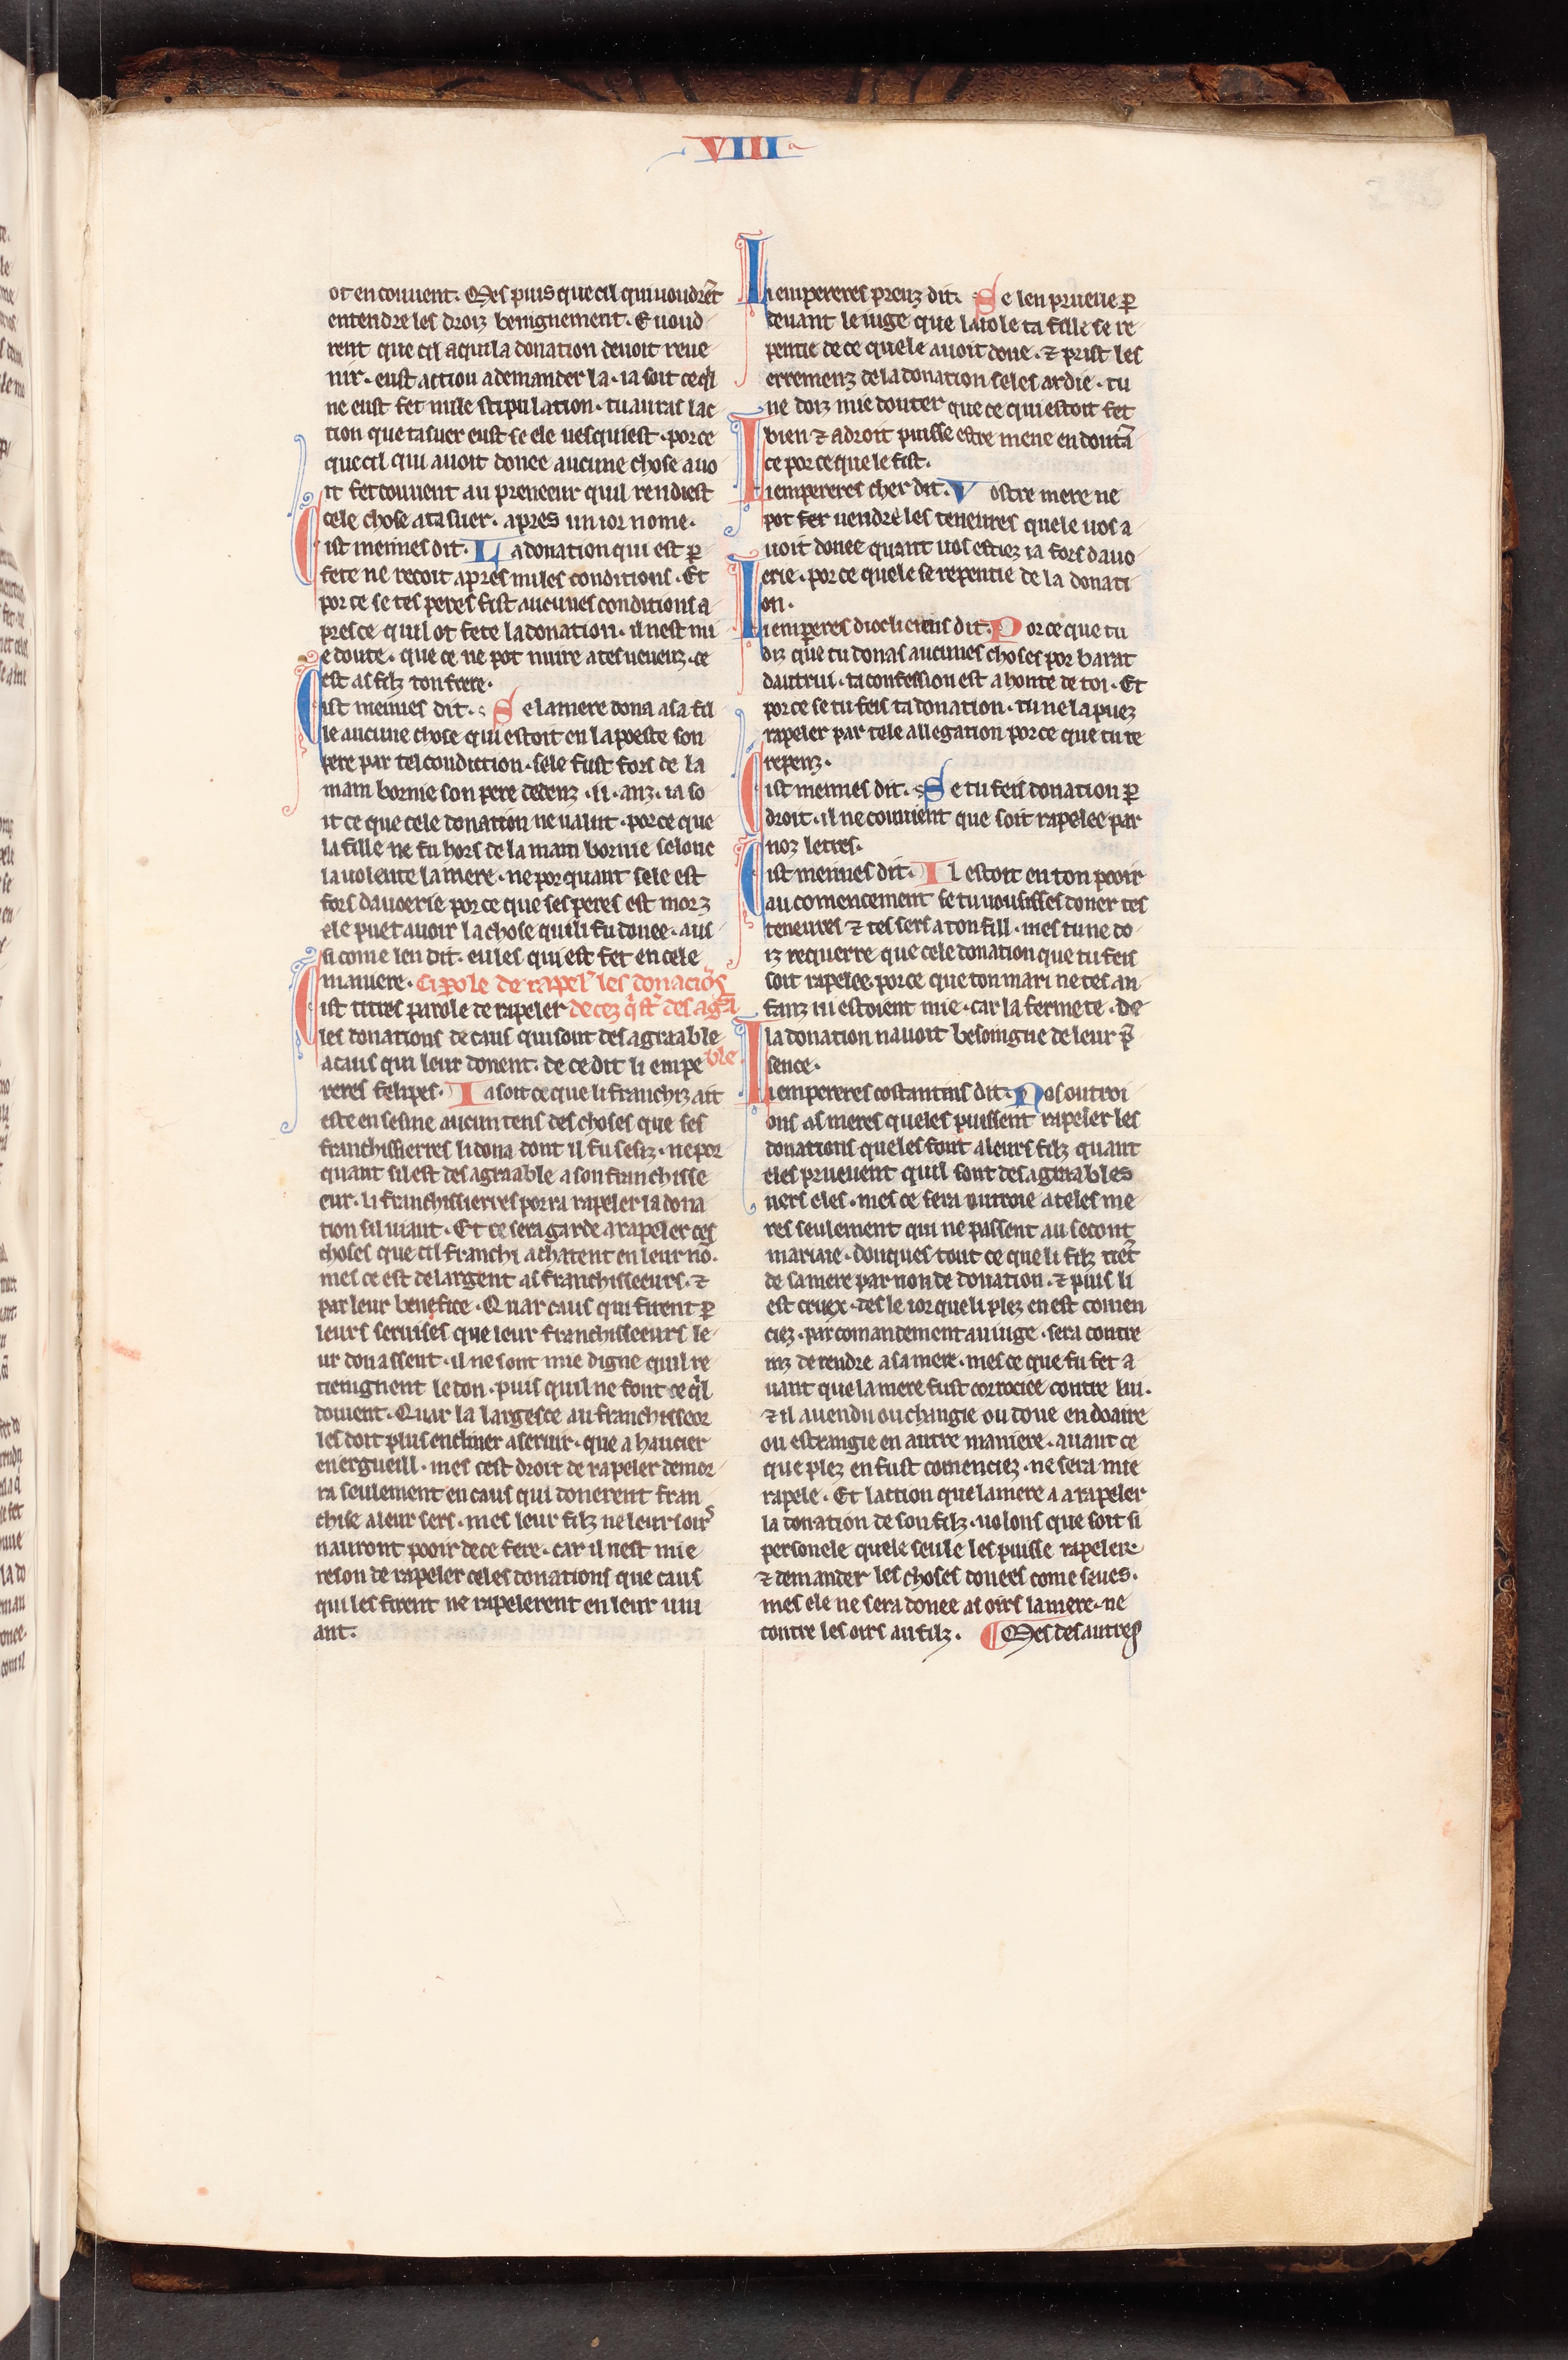 VIII
ot en couuent. Mes puis que cil qui uoudrẽt
entendre les droiz benignement. E uoud
rent que cil a qui la donation deuoit reue
nir. eust action a demander la. ia soit ce qͥl
ne eust fet nule stipulation. tu auras lac
tion que ta suer eust se ele uesquiest. por ce
que cil qui auoit donee aucune chose auo
it fet couuent au preneeur quil rendiest
cele chose a ta suer. apres un ior nome.
Cist meimes dit. La donation qui est ꝑ
fete ne recoit apres nules conditions. Et
por ce se tes peres fist aucunes conditions a
pres ce quil ot fete la donation. il nest mi
e doute. que ce ne pot nuire a tes neueuz. ce
est as filz ton frere.
Cist meimes dit. Se la mere dona a sa fil
le aucune chose qui estoit en la poeste son
pere par tel condiction. sele fust fors de la
main bornie son pere dedenz .ii. anz. ia so
it ce que cele donation ne ualut. por ce que
la fille ne fu hors de la main bornie selonc
la uolente la mere. ne por quant sele est
fors dauoerie por ce que ses peres est morz
ele puet auoir la chose qui li fu donee. aus
si come len dit. eu les qui est fet en cele
maniere. Ci ꝑole de rapelʼ les donaciõs
Cist titres parole de rapeler de cez qͥ sͭ des agͣa
les donations de caus qui sont des agraable
a caus qui leur donent. de ce dit li empe ble
reres felipes. Ia soit ce que li franchiz ait
este en sesine aucun tens des choses que ses
franchissierres li dona dont il fu sesiz. ne por
quant sil est des agraable a son franchisse
eur. li franchissierres porra rapeler la dona
tion sil uiaut. Et ce sera garde a rapeler ces
choses que cil franchi achatent en leur nõ.
mes ce est de largent as franchisseeurs. ⁊
par leur benefice. Quar caus qui firent ꝑ
leurs seruises que leur franchisseeurs le
ur donassent. il ne sont mie digne quil re
tieignent le don. puis quil ne font ce qͥl
doiuent. Quar la largesce au franchisseor
les doit plus encliner a seruir. que a haucier
en ergueill. mes cest droit de rapeler demor
ra seulement en caus qui donerent fran
chise a leur sers. mes leur filz ne leur oirs
nauront pooir de ce fere. car il nest mie
reson de rapeler celes donations que caus
qui les firent ne rapelerent en leur uiu
ant.
Li empereres preuz dit. Se len prueue ꝑ
deuant le iuge que laiole ta fille se re
pentie de ce quele auoit done. ⁊ prist les
erremenz de la donation se les ardie. tu
ne doiz mie douter que ce qui estoit fet
bien ⁊ a droit puisse estre mene en doutã
ce por ce que le fist.
Li empereres cher dit. Vostre mere ne
pot fer uendre les teneures quele uos a
uoit donee quant uos estiez ia fors dauo
erie. por ce quele se repentie de la donati
on.
Li emperes dioclicieus dit. Por ce que tu
diz que tu donas aucunes choses por barat
dautrui. ta confession est a honte de toi. Et
por ce se tu feis ta donation. tu ne la puez
rapeler par tele allegation por ce que tu te
repenz.
Cist meimes dit. Se tu feis donation ꝑ
droit. il ne couuient que soit rapelee par
noz letres.
Cist meimes dit. Il estoit en ton pooir
au comencement se tu uousisses doner tes
teneures ⁊ tes sers a ton fill. mes tu ne do
iz requerre que cele donation que tu feis
soit rapelee. por ce que ton mari ne tes an
fanz ni estoient mie. car la fermete. de
la donation nauoit besoingne de leur p̃
sence.
Li empereres costantins dit. Nos outroi
ons as meres queles puissent rapeler les
donations queles font a leurs filz quant
eles prueuent quil sont des agraables
uers eles. mes ce sera outroie a teles me
res seulement qui ne passent au secont
mariaie. donques tout ce que li filz tiẽt
de sa mere par non de donation. ⁊ puis li
est cruex. des le ior que li plez en est comen
ciez. par comandement au iuge. sera contre
inz de rendre a sa mere. mes ce que fu fet a
uant que la mere fust corrociee contre lui.
⁊ il a uendu ou changie ou done en doaire
ou estrangie en autre maniere. auant ce
que plez en fust comenciez. ne sera mie
rapele. Et laction que la mere a a rapeler
la donation de son filz. uolons que soit si
personele quele seule les puisse rapeler
⁊ demander les choses donees come seues.
mes ele ne sera donee as oirs la mere. ne
contre les oirs au filz. ¶ Mes des autres